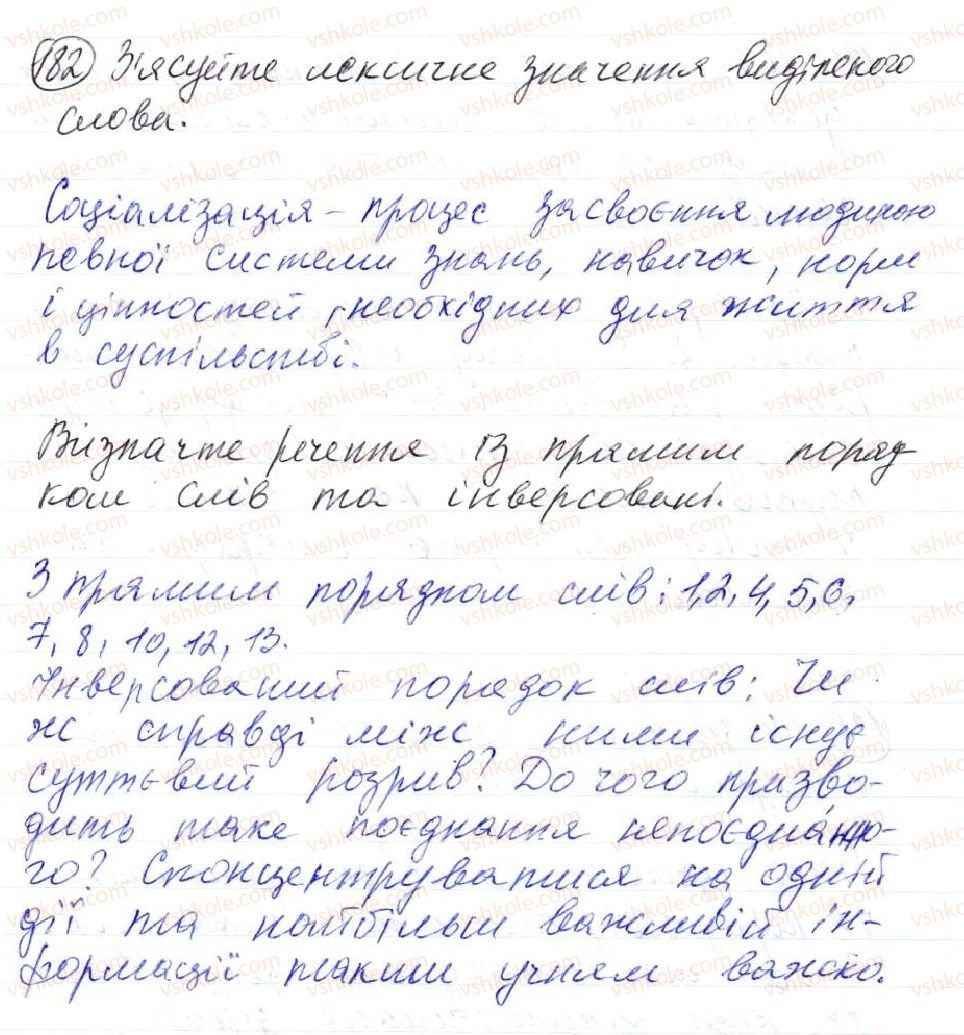 182 З'ясуйте лексичне значення виділеного
слова.
Соціалізація – процес засвоєння людиною
певної системи знань, навичок, норм
і цінностей, необхідних для життя
в суспільстві.
Визначте речення із прямим поряд
ком слів та інверсовані.
З прямим порядком слів: 1,2,4,5,6,
7,8,10,12,13.
Інверсований порядок слів: Чи
ж справді між ними існує
суттєвий розрив? До чого призво-
дить таке поєднання непоєднано-
го? Сконцентруватися на одній
дії та найбільш важливій ін-
формації таким учням важко.